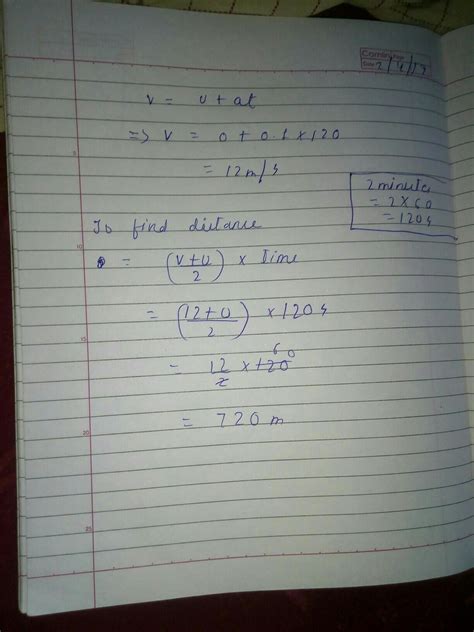 Date 2/4/19
v = u + at
=> v = 0 + 0.1 x 120
= 12 m/s
2 minutes
= 2 x 60
= 120 s
To find distance
= (v+u/2) x Time
= (12+0/2) x 120 s
= 12/2 x 120 60
= 720 m
5
10
15
20
25